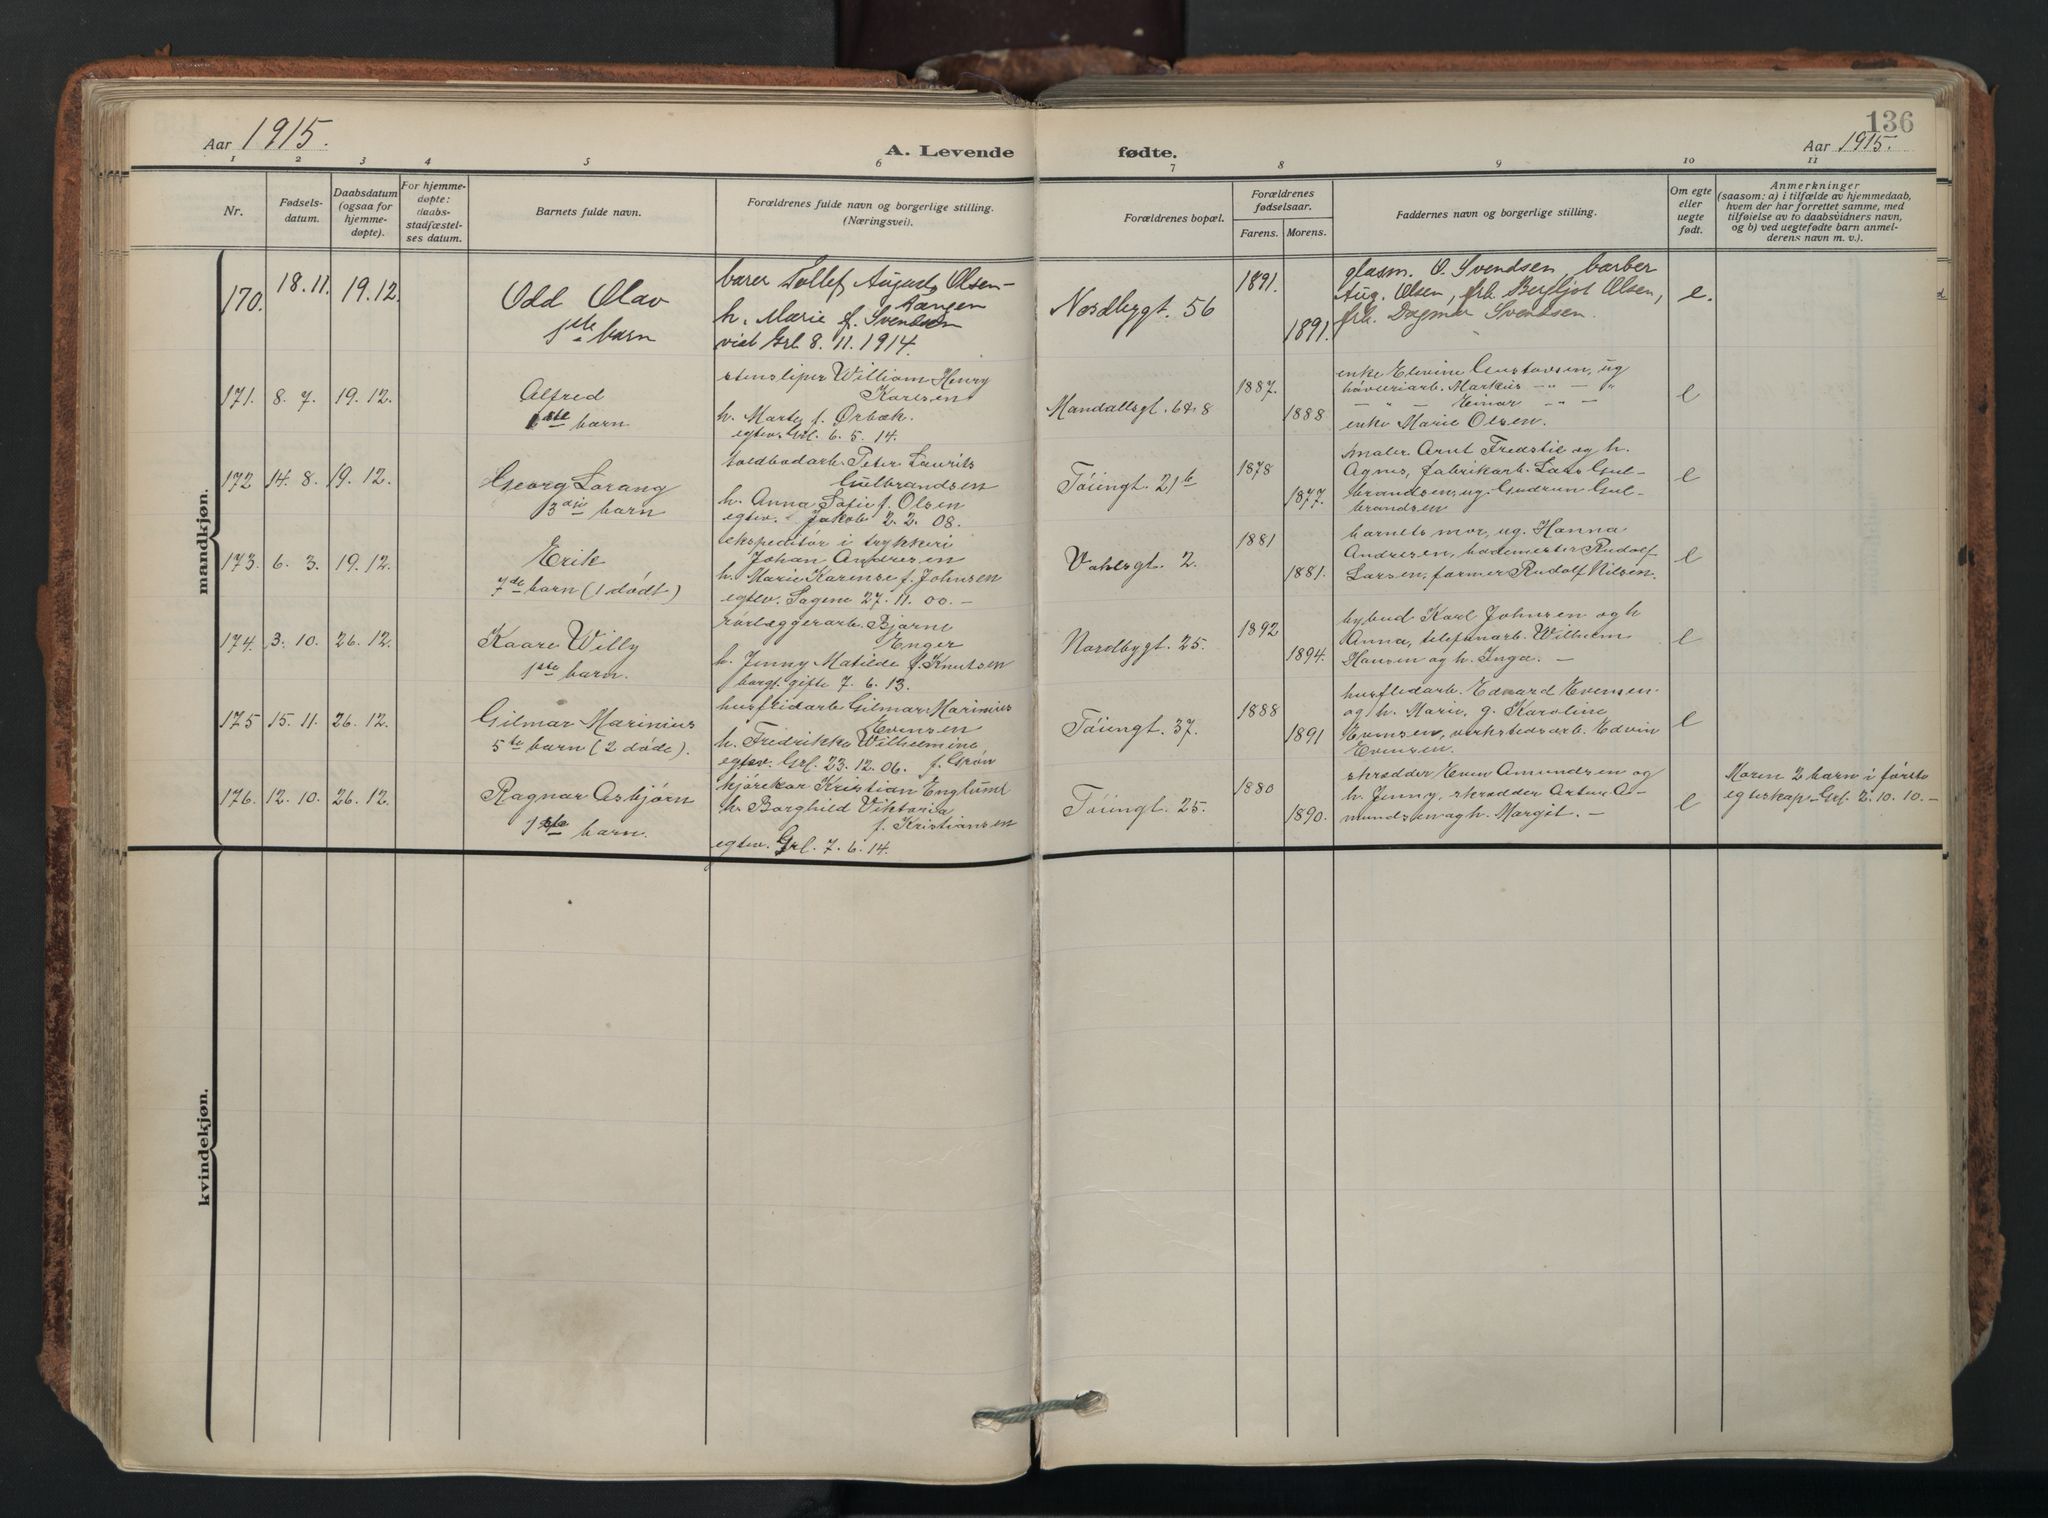 136
Aar 1915.
A. Levende fødte.
Aar 1915.
1 2 3 4 5 6 7 8 9 10 11
Nr.
Fødsels-
datum.
Daabsdatum
(ogsaa for
hjemme-
døpte).
For hjemme-
døpte:
daabs-
stadfæstel-
ses datum.
Barnets fulde navn.
Forældrenes fulde navn og borgerlige stilling.
(Næringsvei).
Forældrenes bopæl.
Forældrenes
fødselsaar.
Farens. Morens.
Faddernes navn og borgerlige stilling.
Om egte
eller
uegte
født.
Anmerkninger
(saasom: a) i tilfælde av hjemmedaab,
hvem der har forrettet samme, med
tilføielse av to daabsvidners navn,
og b) ved uegtefødte barn anmel-
derens navn m. v.).
mandkjøn.
170. 18.11. 19.12.
Odd Olav
1ste barn
August Olsen-
Aangen
h. Marie f. Svendsen
viet Grl. 8.11.1914.
Nordbygt. 56
1891.
1891.
glasm. O. Svendsen, barber
Aug. Olsen, frk. Bergljot Olsen,
frk. Dagmar Svendsen.
e.
171. 8. 7. 19. 12.
Alfred
1ste barn
stensliper William Henry
Karlsen
h. Marte f. Ørbæk
egtev. Grl. 6. 5. 14.
Mandallsgt. 6&8
1887.
1888
enke Elevine Gustavsen, ug
Markus -"- - "
- " - Einar -"- -
enke Marie Olsen.
e
172 14. 8. 19. 12.
Georg Lorang
3die barn
toldbodarb. Peter Laurits
Gulbrandsen
h. Anna Sofie f. Olsen
egtev. Jakob 2. 2. 08.
Tøiengt. 21b
1878
1877.
maler Arnt Fredstie og h.
Agnes, fabrikarb. Lars Gul-
brandsen, ug. Gudrun Gul-
brandsen
e
173. 6. 3. 19. 12.
Erik
7de barn (1 dødt)
ekspeditør i trykkeri
Johan Andresen
h. Marie Karense f. Johnsen
egtev. Sagene 27. 11. 00. -
Vahlsgt. 2.
1881
1881.
barnets mor, ug. Hanna
Andresen, bademester Rudolf
Larsen, farmer Rudolf Nilsen.
e
174. 3. 10. 26. 12.
Kaare Willy
1ste barn.
rørlæggerarb. Bjarne
Enger
h. Jenny Matilde f. Knutsen
borgl. gifte 7. 6. 13.
Nordbygt. 25.
1892
1894.
bybud Karl Johnsen og h
Anna, telefonarb. Wilhelm
Hansen og h. Inga. -
e
175 15. 11. 26. 12.
Gilmar Marinius
5te barn (2 døde).
husflidarb Gilmar Marinius
Evensen
h. Fredrikke Wilhelmine,
egtev. Grl. 23. 12. 06. f. Grøn
Tøiengt. 37.
1888
1891
husflidarb. Edvard Evensen
og h. Marie, g. Karoline
Evensen, verkstedsarb. Edvin
Evensen.
e
176. 12. 10. 26. 12.
Ragnar Asbjørn
1ste barn.
kjørekar Kristian Englund
h. Borghild Viktoria
f. Kristiansen
egtev. Grl. 7. 6. 14.
Tøiengt. 25.
1880
1890.
skrædder Even Amundsen og
h. Jenny, skrædder Artur A-
mundsen og h. Margit. -
e
Moren 2 barn i første
egteskap - Grl. 2. 10. 10. -
kvindekjøn.